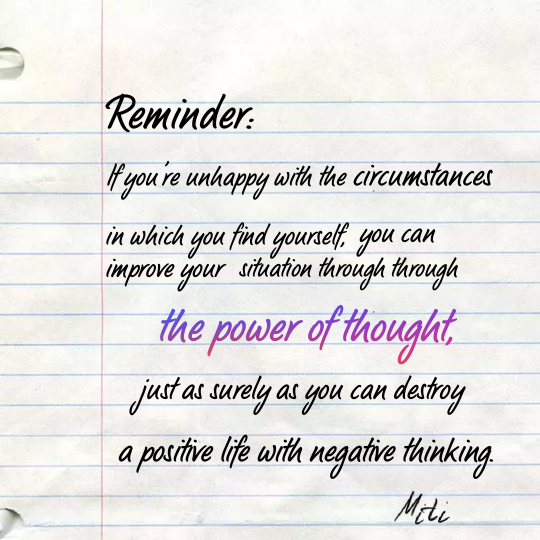 Reminder:
If you're unhappy with the circumstances
in which you find yourself, you can
improve your situation through through
the power of thought,
just as surely as you can destroy
a positive life with negative thinking.
Miti